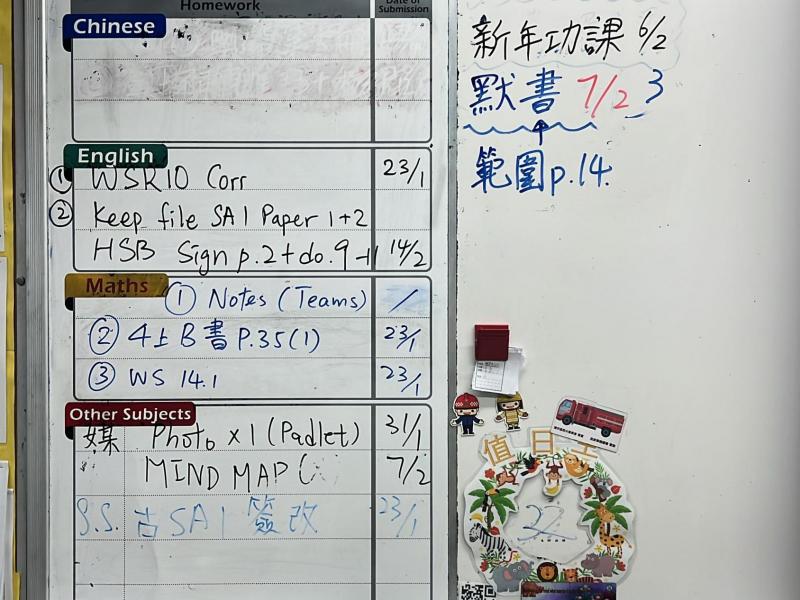 Homework
Date of Submission
Chinese
English
① WSR10 Corr 23/1
② Keep file SA1 Paper 1+2
HSB Sign p.2+do.9-11 14/2
Maths
① Notes (Teams) /
② 4上B書 P.35(1) 23/1
③ WS 14.1 23/1
Other Subjects
媒 Photo x1 (Padlet) 31/1
MIND MAP ( 7/2
S.S. 古SA1 簽改 23/1
新年功課 6/2
默書 7/2 3
範圍p.14.
值日生
2